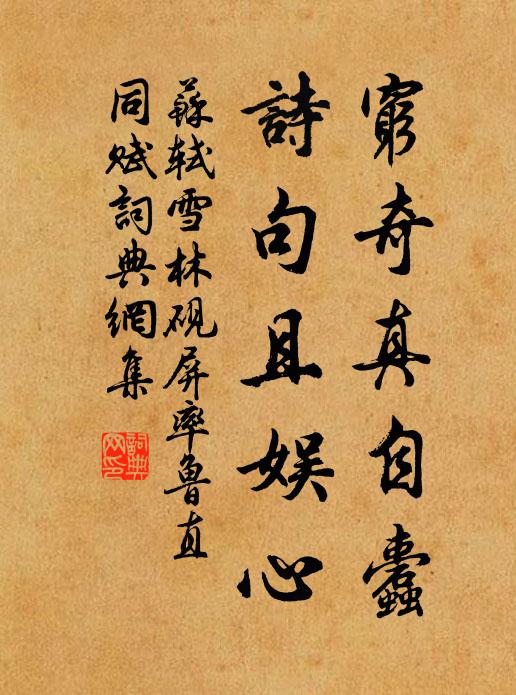 窮奇真自蠹
詩句且娱心
蘇軾雪林硯屏率魯直
同賦詞典網集
詞典
网印